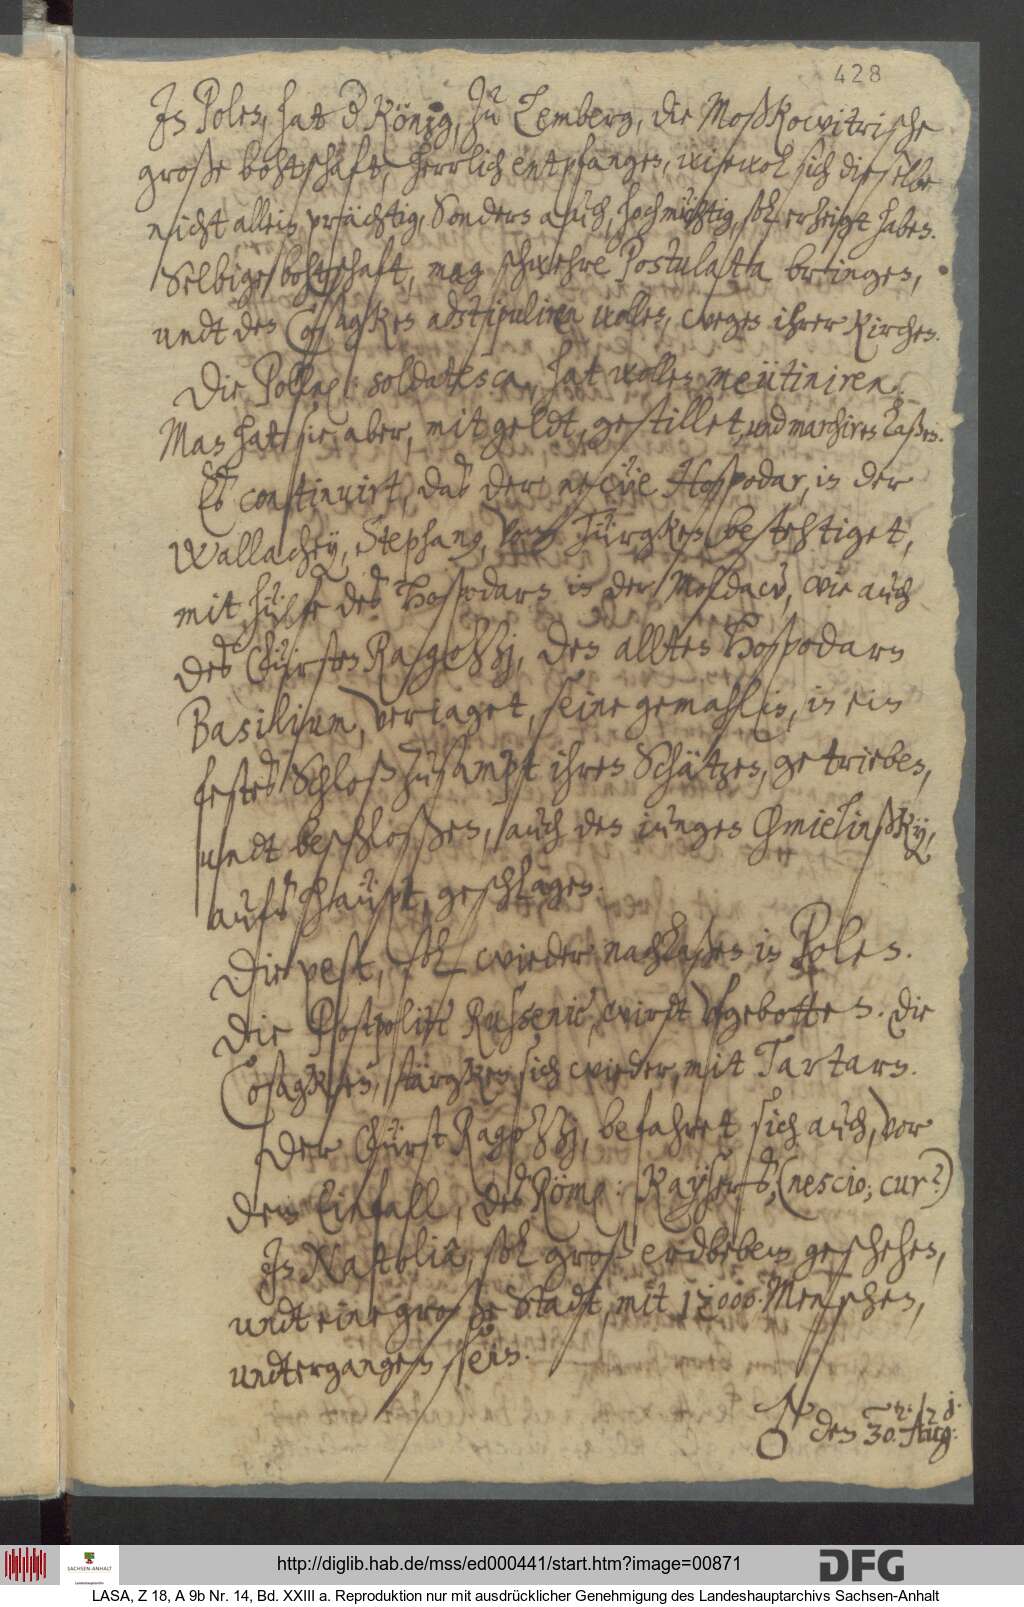 428
In Polen, hat d König, zu Lemberg, die Moßkowitrische
große bohtschaft, herrlich entpfangen, wiewol sich dieselbe
nicht allein prächtig, Sondern auch, hochmühtig, sol erzeigt haben.
Selbige bohtschaft, mag schwehre Postulata bringen,
undt den Cosagken adstipuliren wollen, wegen ihrer Kirchen.
Die Polln: soldatesca, hat wollen meütiniren,
Man hat sie aber, mit geldt, gestillet, und marchiren laßen.
Es continuirt, das der neüe Hospodar, in der
Wallachey, Stephano, vom Türgken bestehtiget,
mit hülfe des Hospodars in der Moldaw, wie auch
des Fürsten Ragozzij, den allten Hospodarn
Basilium, verjaget, seine gemahlin, in ein
festes Schloß zusampt ihren Schätzen, getrieben,
undt beschloßen, auch den jungen Chmielinßky,
aufs haüpt, geschlagen.
Die pest, sol wieder nachlaßen in Polen.
Die Postpolite Russenie, wirdt ufgebotten. Die
Cosagken, stärgken sich wieder, mit Tartarn.
Der Fürst Ragozzij, befahret sich auch, vor
dem Einfall, des Röm: Kaysers, (nescio; cur?)
In Natolia, sol groß erdbeben geschehen,
undt eine große Stadt, mit 12000. Menschen,
undtergangen sein.
den 30. Aug:
http://diglib.hab.de/mss/ed000441/start.htm?image=00871
SACHSEN-ANHALT
DFG
LASA, Z 18, A 9b Nr. 14, Bd. XXIII a. Reproduktion nur mit ausdrücklicher Genehmigung des Landeshauptarchivs Sachsen-Anhalt